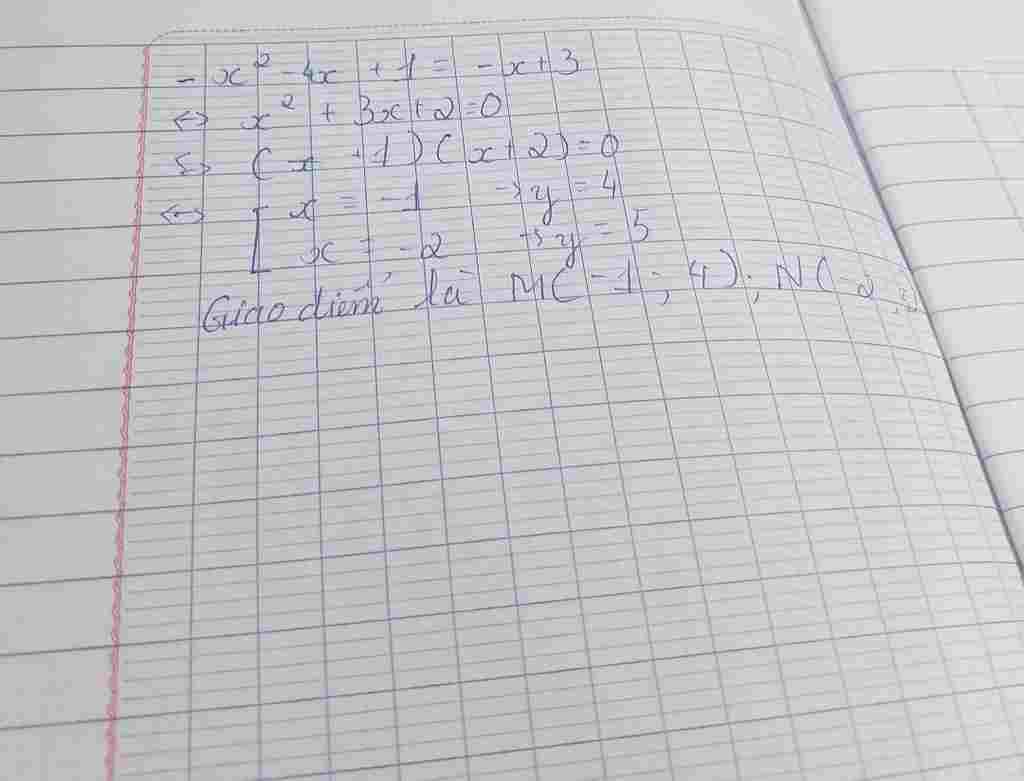 - x² - 4x + 1 = - x + 3
<-> x² + 3x + 2 = 0
<-> (x + 1)(x + 2) = 0
<-> [ x = -1 -> y = 4
x = -2 -> y = 5
Giao điểm là M(-1; 4); N(-2;